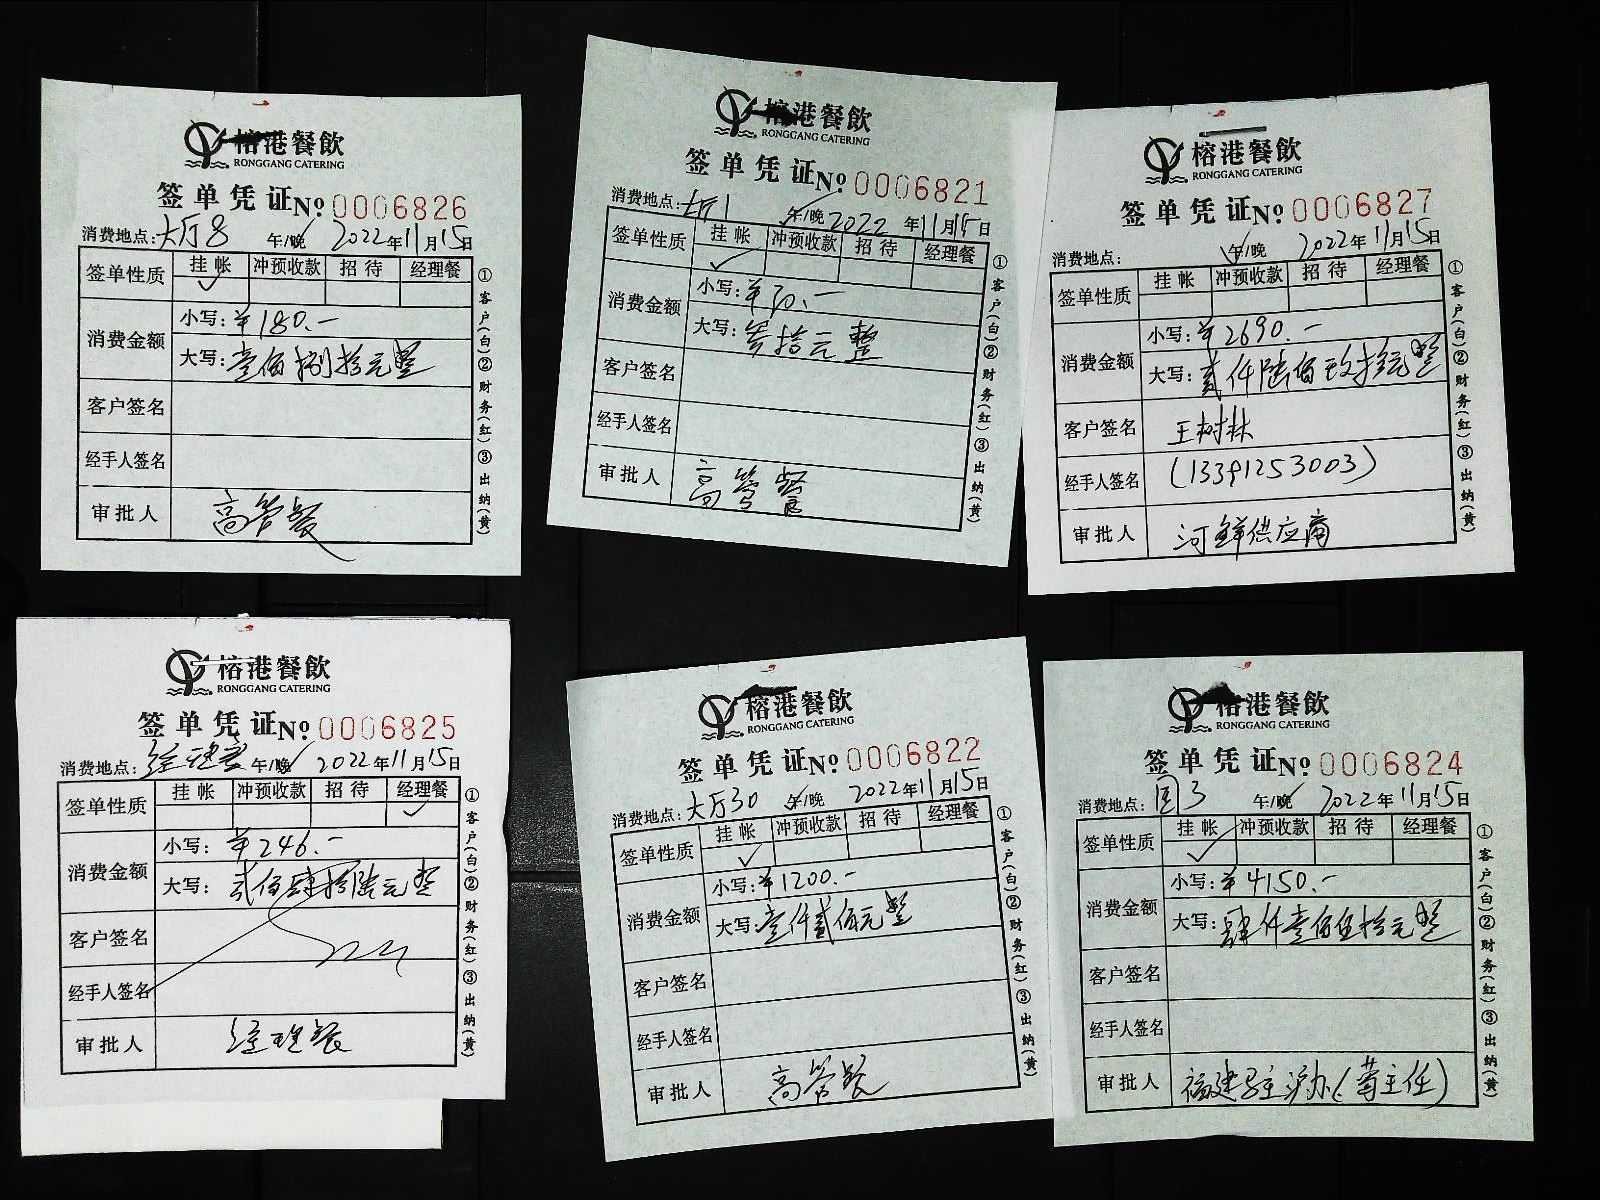 榕港餐飲
RONGGANG CATERING
签单凭证 № 0006826
消费地点:大厅8 午/晚 2022年11月15日
签单性质 挂帐 冲预收款 招待 经理餐
消费金额
小写:¥180.-
大写:壹佰捌拾元整
客户签名
经手人签名
审批人 高管餐
①客户(白)②财务(红)③出纳(黄)
榕港餐飲
RONGGANG CATERING
签单凭证 № 0006821
消费地点:大厅1 午/晚 2022年11月15日
签单性质 挂帐 冲预收款 招待 经理餐
消费金额
小写:¥30.-
大写:叁拾元整
客户签名
经手人签名
审批人 高管餐
①客户(白)②财务(红)③出纳(黄)
榕港餐飲
RONGGANG CATERING
签单凭证 № 0006827
消费地点: 午/晚 2022年11月15日
签单性质 挂帐 冲预收款 招待 经理餐
消费金额
小写:¥2690.-
大写:贰仟陆佰玖拾元整
客户签名 王树林
经手人签名 (13391253003)
审批人 河鲜供应商
①客户(白)②财务(红)③出纳(黄)
榕港餐飲
RONGGANG CATERING
签单凭证 № 0006825
消费地点: 午/晚 2022年11月15日
签单性质 挂帐 冲预收款 招待 经理餐
消费金额
小写:¥246.-
大写:贰佰肆拾陆元整
客户签名
经手人签名
审批人 经理餐
①客户(白)②财务(红)③出纳(黄)
榕港餐飲
RONGGANG CATERING
签单凭证 № 0006822
消费地点:大厅30 午/晚 2022年11月15日
签单性质 挂帐 冲预收款 招待 经理餐
消费金额
小写:¥1200.-
大写:壹仟贰佰元整
客户签名
经手人签名
审批人 高管餐
①客户(白)②财务(红)③出纳(黄)
榕港餐飲
RONGGANG CATERING
签单凭证 № 0006824
消费地点: 3 午/晚 2022年11月15日
签单性质 挂帐 冲预收款 招待 经理餐
消费金额
小写:¥4150.-
大写:肆仟壹佰伍拾元整
客户签名
经手人签名
审批人 福建省驻沪办(黄主任)
①客户(白)②财务(红)③出纳(黄)